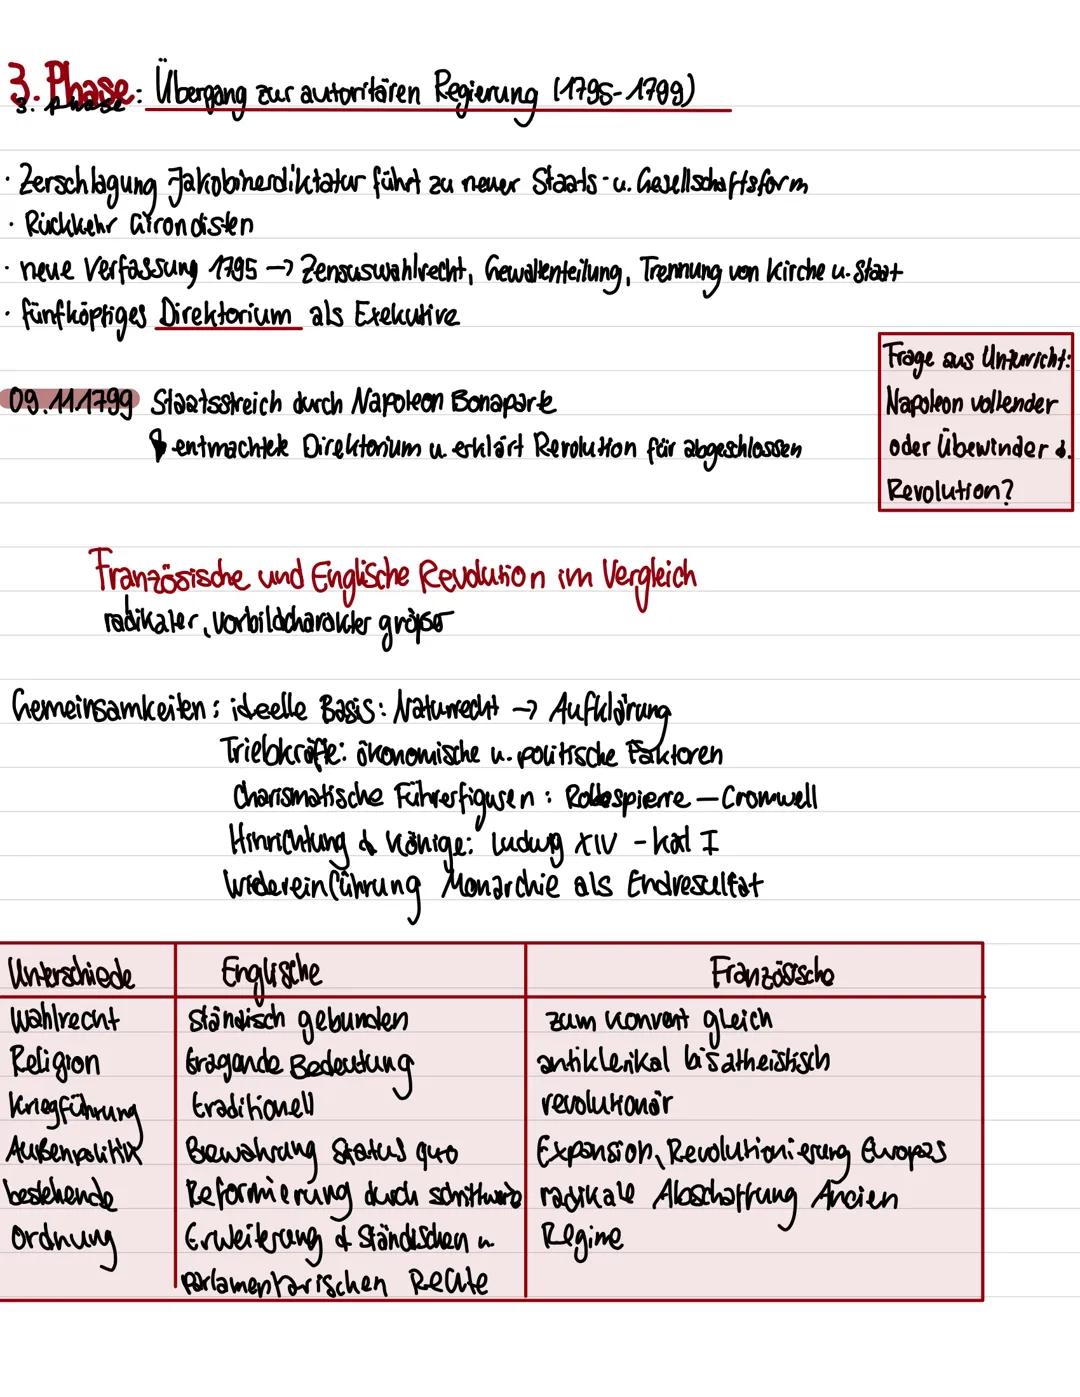 3. Phase: Übergang zur autoritären Regierung (1795-1799)
3. Phase
· Zerschlagung Jakobinerdiktatur führt zu neuer Staats- u. Gesellschaftsform
· Rückkehr Girondisten
· neue Verfassung 1795 → Zensuswahlrecht, Gewaltenteilung, Trennung von Kirche u. Staat
· fünfköpfiges Direktorium als Exekutive
09.11.1799 Staatsstreich durch Napoleon Bonaparte
↳ entmachtete Direktorium u. erklärt Revolution für abgeschlossen
Frage aus Unterricht:
Napoleon vollender
oder Übewinder d.
Revolution?
Französische und Englische Revolution im Vergleich
radikaler, vorbildcharakter größer
Gemeinsamkeiten: ideelle Basis: Naturrecht → Aufklärung
Triebkräfte: ökonomische u. politische Faktoren
Charismatische Führerfiguren: Robespierre – Cromwell
Hinrichtung d Könige: Ludwig XIV - Karl I
Widereinführung Monarchie als Endresultat
Unterschiede Englische Französische
Wahlrecht ständisch gebunden zum Konvent gleich
Religion tragende Bedeutung antiklerikal bis atheistisch
Kriegführung traditionell revolutionär
Außenpolitik Bewahrung Status quo Expansion, Revolutionierung Europas
bestehende Reformierung durch schrittweise radikale Abschaffung Ancien
Ordnung Erweiterung d Ständischen u Régime
parlamentarischen Rechte